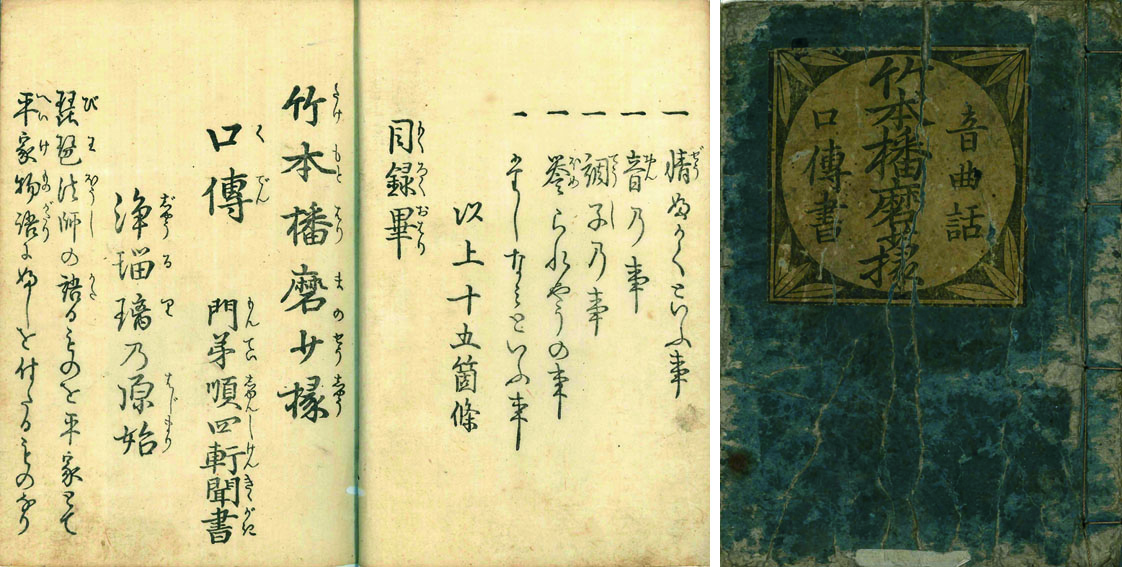 音曲話
竹本播磨少掾
口傳書
一 情ふかくといふ事
一 音乃事
一 調子乃事
一 譽られやうの事
一 たしなみといふ事
以上十五箇條
目録畢
竹本播磨少掾
口傳 門弟順四軒聞書
浄瑠璃乃原始
琵琶法師の語るものを平家とて
平家物語にふしを付たるものなり